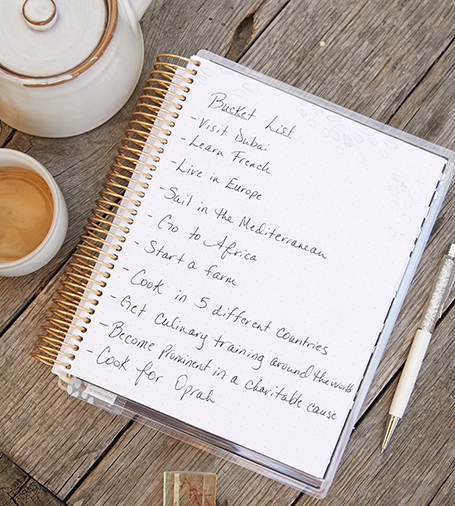 Bucket List
- Visit Dubai
- Learn French
- Live in Europe
- Sail in the Mediterranean
- Go to Africa
- Start a farm
- Cook in 5 different Countries
- Get Culinary training around the world
- Become Prominent in a charitable cause
- Cook for Oprah